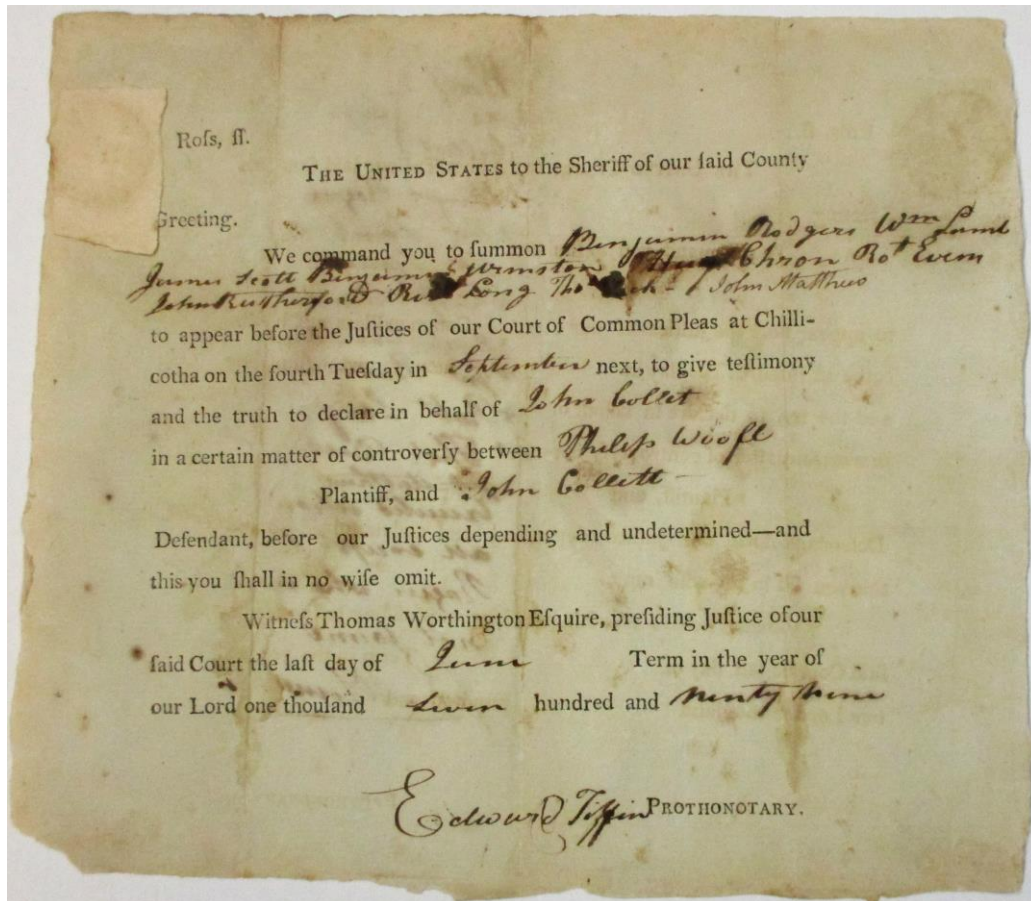 Roſs, ſſ.
THE UNITED STATES to the Sheriff of our ſaid County
Greeting.
We command you to ſummon Benjamin Rodgers Wm Lamb
James Scott Benjamin Urmston Chron Rot Evens
John Rutherford Long Tho John Matthews
to appear before the Juſtices of our Court of Common Pleas at Chilli-
cotha on the fourth Tueſday in September next, to give teſtimony
and the truth to declare in behalf of John Collet
in a certain matter of controverſy between Philip Woofl
Plantiff, and John Collett
Defendant, before our Juſtices depending and undetermined—and
this you ſhall in no wiſe omit.
Witneſs Thomas Worthington Eſquire, preſiding Juſtice of our
ſaid Court the laſt day of June Term in the year of
our Lord one thouſand seven hundred and ninty nine
Edward Tiffin PROTHONOTARY.